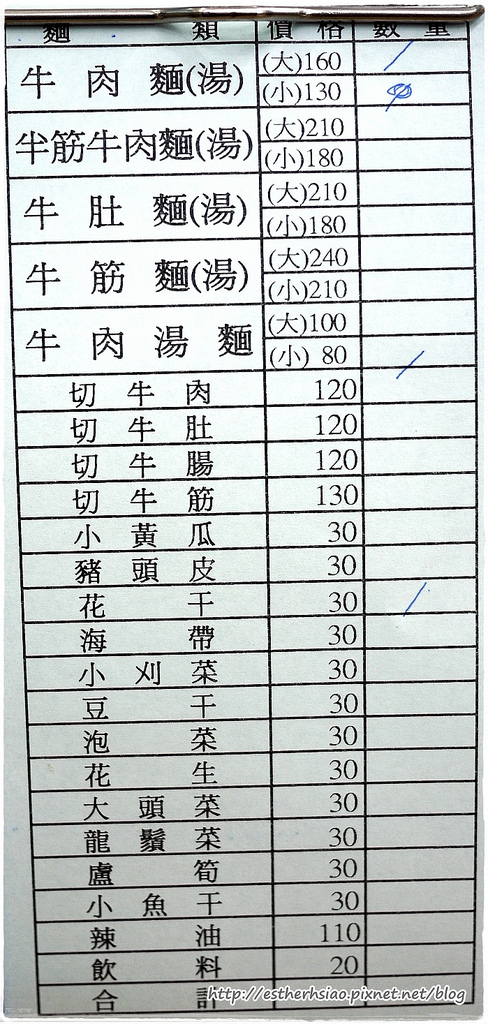 麵 類 價 格 數 量
牛 肉 麵(湯) (大)160
(小)130
半筋牛肉麵(湯) (大)210
(小)180
牛 肚 麵(湯) (大)210
(小)180
牛 筋 麵(湯) (大)240
(小)210
牛 肉 湯 麵 (大)100
(小) 80
切 牛 肉 120
切 牛 肚 120
切 牛 腸 120
切 牛 筋 130
小 黃 瓜 30
豬 頭 皮 30
花 干 30
海 帶 30
小 刈 菜 30
豆 干 30
泡 菜 30
花 生 30
大 頭 菜 30
龍 鬚 菜 30
盧 筍 30
小 魚 干 30
辣 油 110
飲 料 20
合 計
http://estherhsiao.pixnet.net/blog